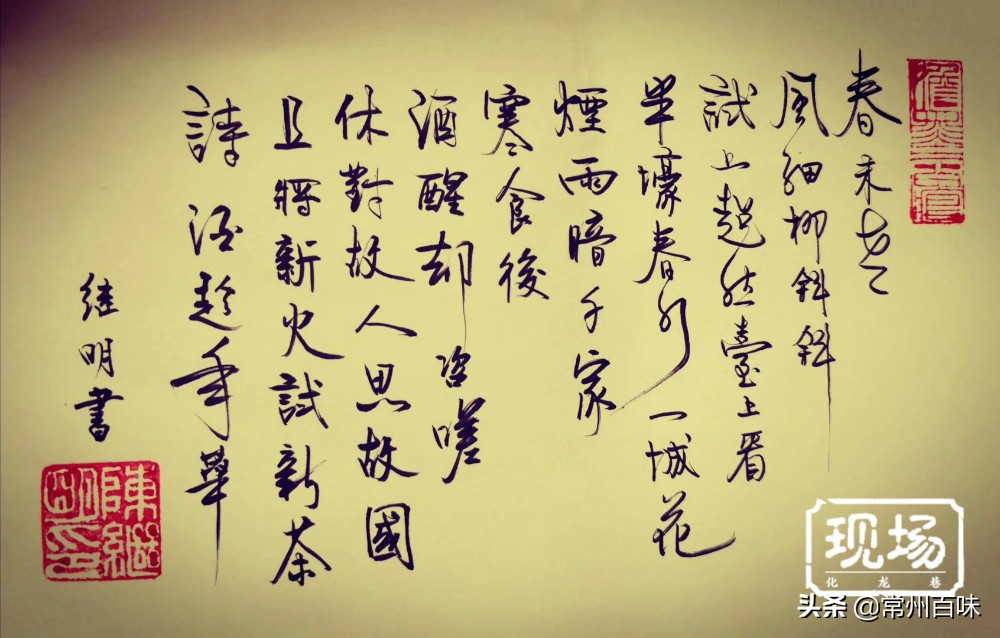 春未老
風細柳斜斜
試上超然臺上看
半壕春水一城花
煙雨暗千家
寒食後
酒醒却咨嗟
休對故人思故國
且將新火試新茶
詩酒趁年華
继明書
陳繼明印
现场
化龙巷
头条 @常州百味